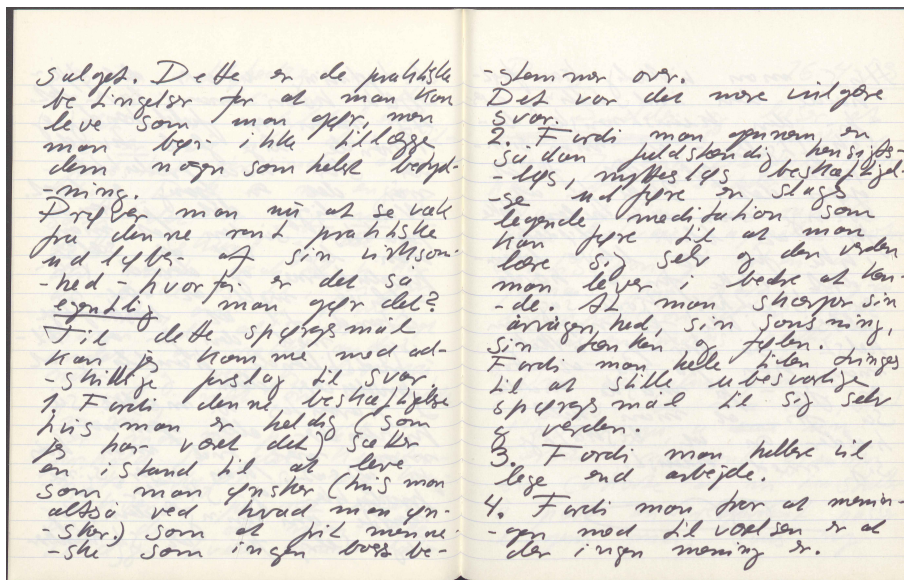 salget. Dette er de praktiske
betingelser for at man kan
leve som man gør, men
man bør ikke tillægge
dem nogen som helst betyd-
-ning.
Prøver man nu at se væk
fra denne rent praktiske
udløber af sin virksom-
-hed - hvorfor er det så
egentlig man gør det?
Til dette spørgsmål
kan jeg komme med ad-
-skillige forslag til svar.
1. Fordi denne beskæftigelse
hvis man er heldig (som
jeg har været det) sætter
en i stand til at leve
som man ønsker (hvis man
altså ved hvad man øn-
-sker.) som et frit menne-
-ske som ingen boss be-
-stemmer over.
Det var det mere vulgære
svar.
2. Fordi man gennem en
sådan fuldstændig hensigts-
-løs, nytteløs beskæftigel-
-se udfører en slags
legende meditation som
kan føre til at man
lære sig selv og den verden
man lever i bedre at ken-
-de. At man skærper sin
årvågenhed, sin sansning,
sin tænken og følen.
Fordi man hele tiden tvinges
til at stille ubesvarlige
spørgsmål til sig selv
og verden.
3. Fordi man hellere vil
lege end arbejde.
4. Fordi man tror at menin-
-gen med tilværelsen er at
der ingen mening er.